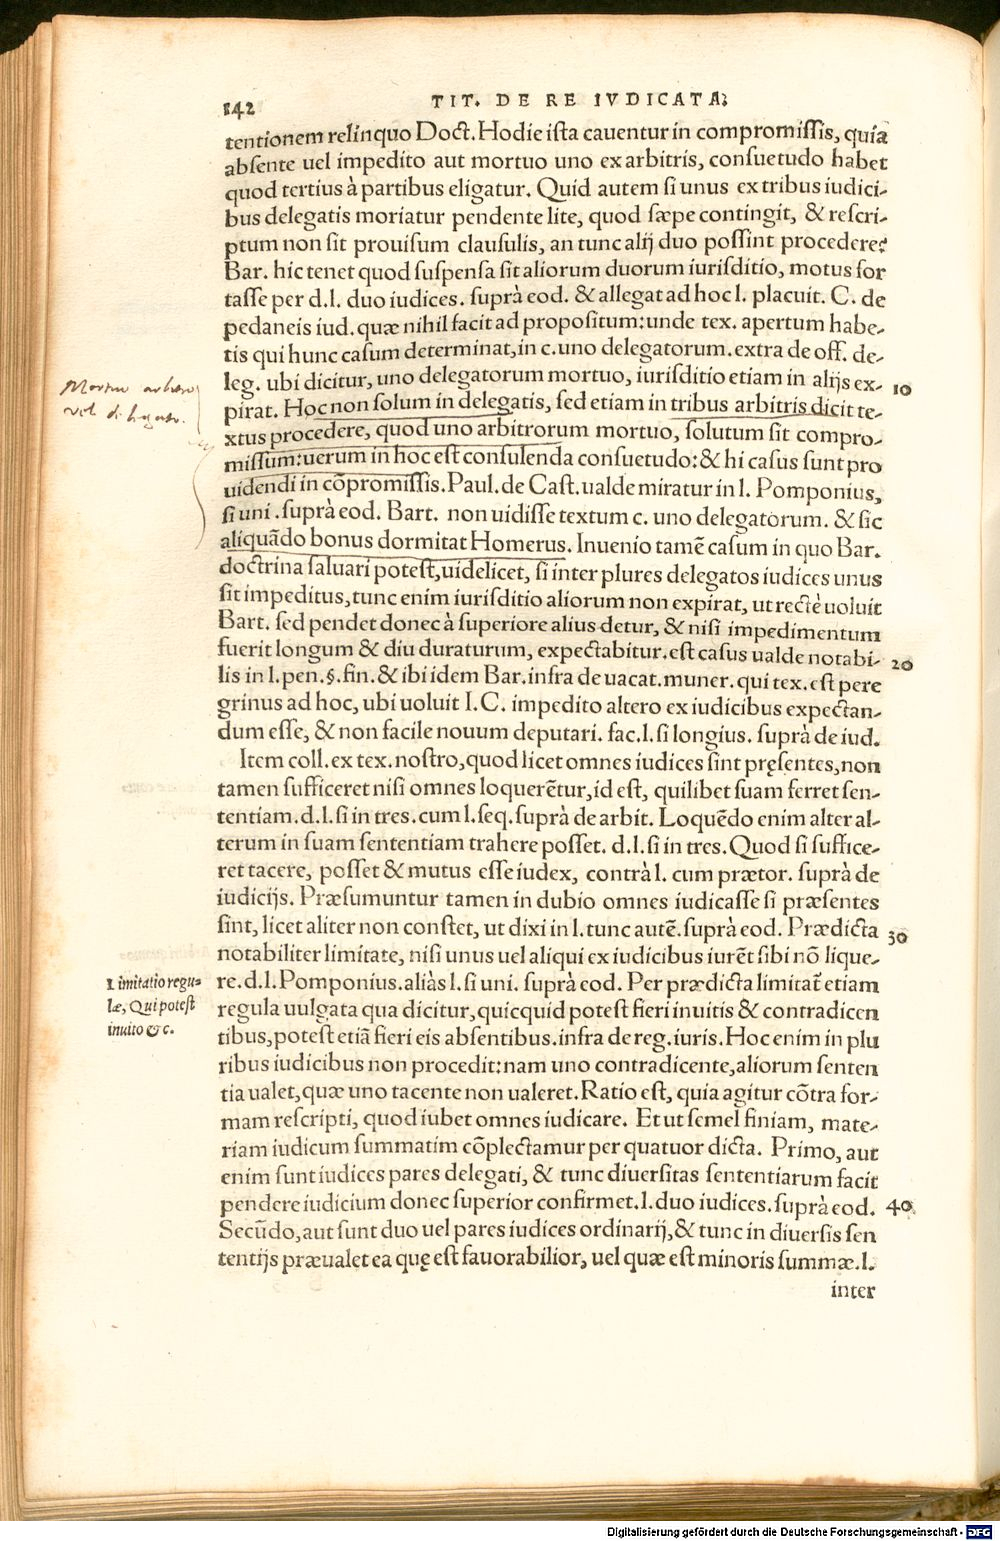 142
TIT. DE RE IVDICATA;
tentionem relinquo Doct. Hodie ista cauentur in compromissis, quia
absente uel impedito aut mortuo uno ex arbitris, consuetudo habet
quod tertius à partibus eligatur. Quid autem si unus ex tribus iudici-
bus delegatis moriatur pendente lite, quod sæpe contingit, & rescri-
ptum non sit prouisum clausulis, an tunc alij duo possint procedere?
Bar. hic tenet quod suspensa sit aliorum duorum iurisditio, motus for
tasse per d.l. duo iudices. suprà eod. & allegat ad hoc l. placuit. C. de
pedaneis iud. quæ nihil facit ad propositum: unde tex. apertum habe-
tis qui hunc casum determinat, in c. uno delegatorum. extra de off. de-
leg. ubi dicitur, uno delegatorum mortuo, iurisditio etiam in alijs ex-
10
pirat. Hoc non solum in delegatis, sed etiam in tribus arbitris dicit te-
xtus procedere, quod uno arbitrorum mortuo, solutum sit compro-
missum: uerum in hoc est consulenda consuetudo: & hi casus sunt pro
uidendi in cõpromissis. Paul. de Cast. ualde miratur in l. Pomponius,
si uni. suprà eod. Bart. non uidisse textum c. uno delegatorum. & sic
aliquãdo bonus dormitat Homerus. Inuenio tamẽ casum in quo Bar.
doctrina saluari potest, uidelicet, si inter plures delegatos iudices unus
sit impeditus, tunc enim iurisditio aliorum non expirat, ut rectè uoluit
Bart. sed pendet donec à superiore alius detur, & nisi impedimentum
fuerit longum & diu duraturum, expectabitur. est casus ualde notabi-
20
lis in l. pen. §. fin. & ibi idem Bar. infra de uacat. muner. qui tex. est pere
grinus ad hoc, ubi uoluit I.C. impedito altero ex iudicibus expectan-
dum esse, & non facile nouum deputari. fac. l. si longius. suprà de iud.
Item coll. ex tex. nostro, quod licet omnes iudices sint pręsentes, non
tamen sufficeret nisi omnes loquerẽtur, id est, quilibet suam ferret sen-
tentiam. d.l. si in tres. cum l. seq. suprà de arbit. Loquẽdo enim alter al-
terum in suam sententiam trahere posset. d.l. si in tres. Quod si suffice-
ret tacere, posset & mutus esse iudex, contrà l. cum prætor. suprà de
iudicijs. Præsumuntur tamen in dubio omnes iudicasse si præsentes
sint, licet aliter non constet, ut dixi in l. tunc autẽ. suprà eod. Prædicta
30
notabiliter limitate, nisi unus uel aliqui ex iudicibus iurẽt sibi nõ lique-
re. d.l. Pomponius. aliàs l. si uni. suprà eod. Per prædicta limitat̃ etiam
regula uulgata qua dicitur, quicquid potest fieri inuitis & contradicen
tibus, potest etiã fieri eis absentibus. infra de reg. iuris. Hoc enim in plu
ribus iudicibus non procedit: nam uno contradicente, aliorum senten
tia ualet, quæ uno tacente non ualeret. Ratio est, quia agitur cõtra for-
mam rescripti, quod iubet omnes iudicare. Et ut semel finiam, mate-
riam iudicum summatim cõplectamur per quatuor dicta. Primo, aut
enim sunt iudices pares delegati, & tunc diuersitas sententiarum facit
pendere iudicium donec superior confirmet. l. duo iudices. suprà eod.
40
Secũdo, aut sunt duo uel pares iudices ordinarij, & tunc in diuersis sen
tentijs præualet ea quę est fauorabilior, uel quæ est minoris summæ. l.
inter
Mortuo arbitro
vel delegato.
Limitatio regu-
læ, Qui potest
inuito &c.
Digitalisierung gefördert durch die Deutsche Forschungsgemeinschaft - DFG